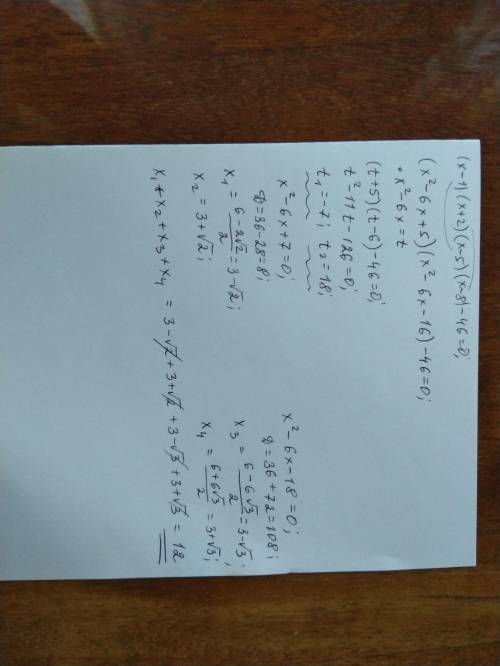 (x-1)(x+2)(x-5)(x-8)-46=0;
(x²-6x+5)(x²-6x-16)-46=0;
• x²-6x=t
(t+5)(t-6)-46=0;
t²-11t-126=0;
t₁=-7; t₂=18;
x²-6x+7=0;
D=36-28=8;
x₁ = (6-2√2)/2 = 3-√2;
x₂ = 3+√2;
x²-6x-18=0;
D=36+72=108;
x₃ = (6-6√3)/2 = 3-√3;
x₄ = (6+6√3)/2 = 3+√3;
x₁+x₂+x₃+x₄ = 3-√2+3+√2+3-√3+3+√3 = 12